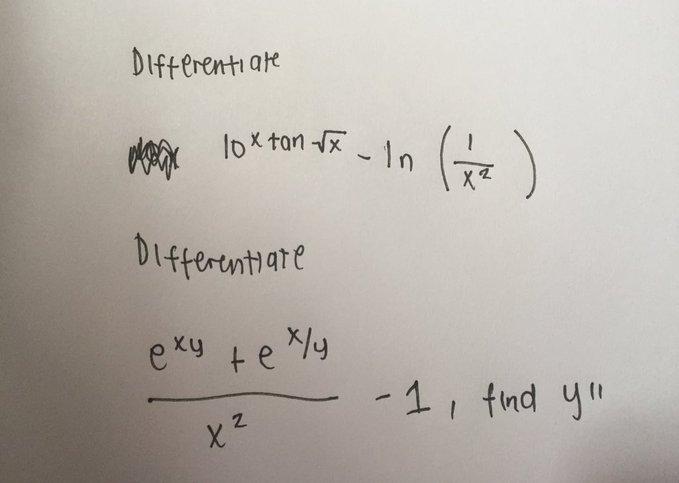 Differentiate
10^{x tan √x} - ln (1/x²)
Differentiate
(e^{xy} + e^{x/y})/x² - 1, find y''